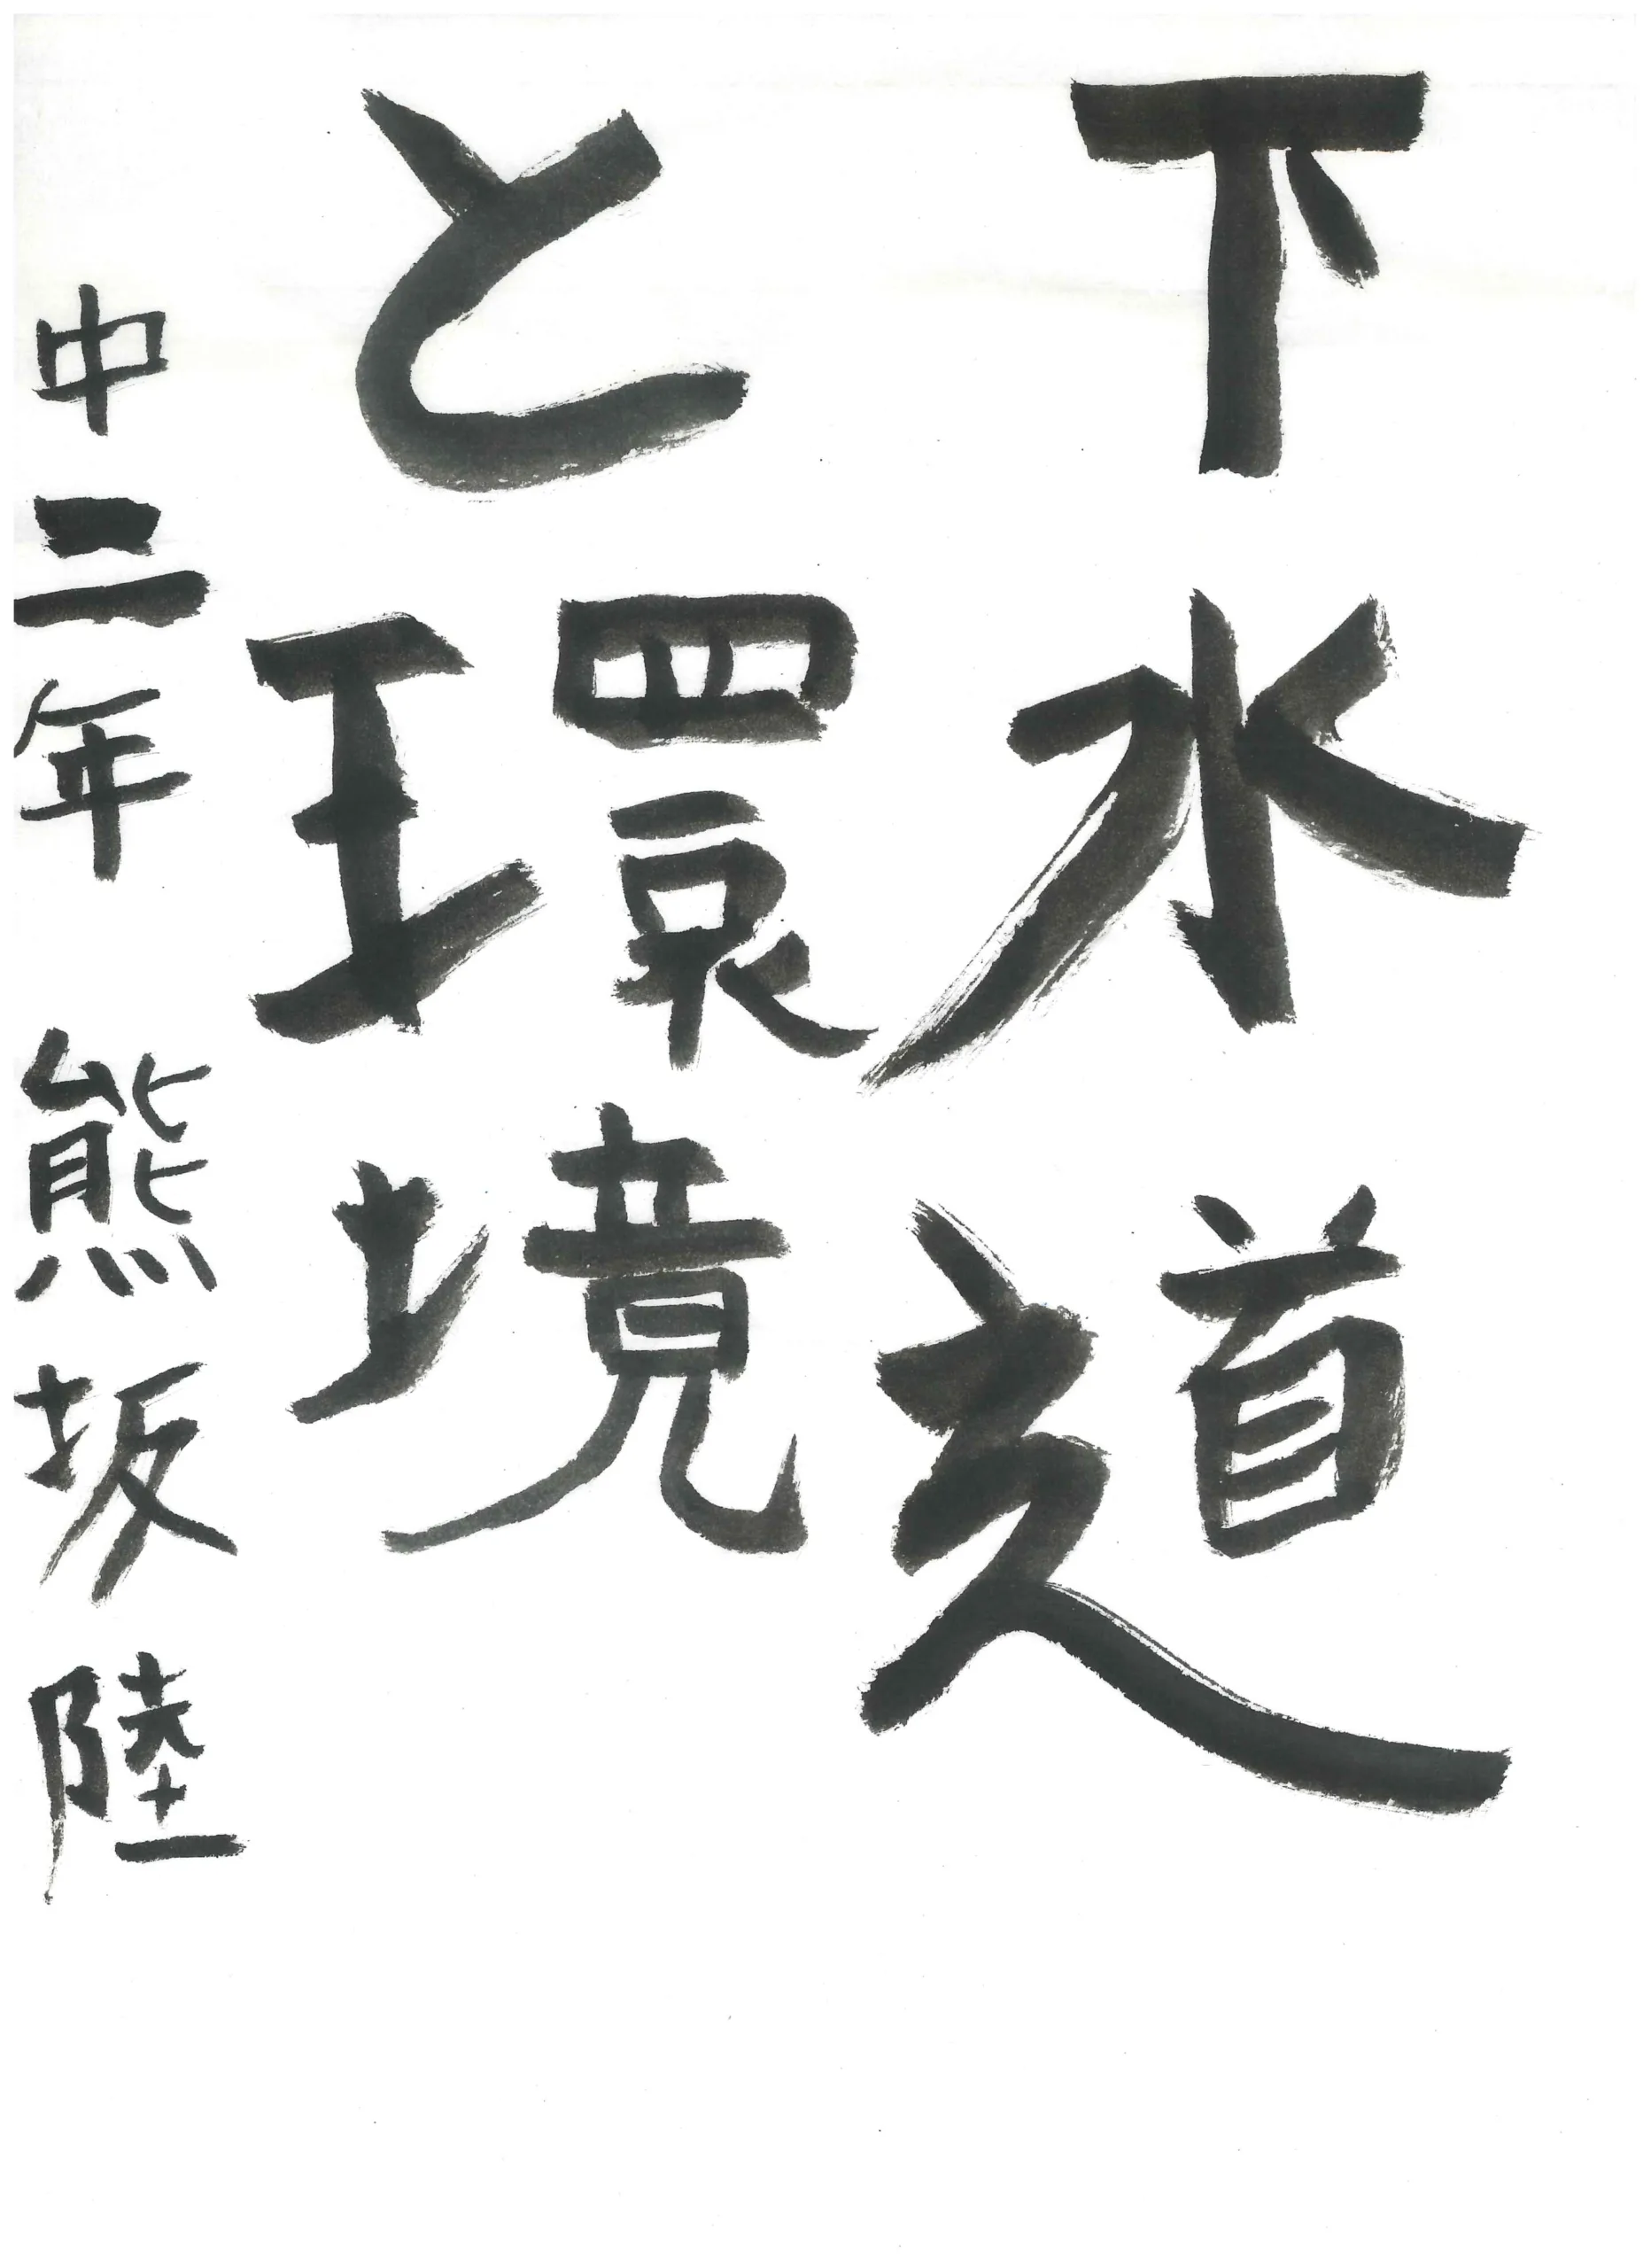 下水道
と環境
中二年 熊坂陸